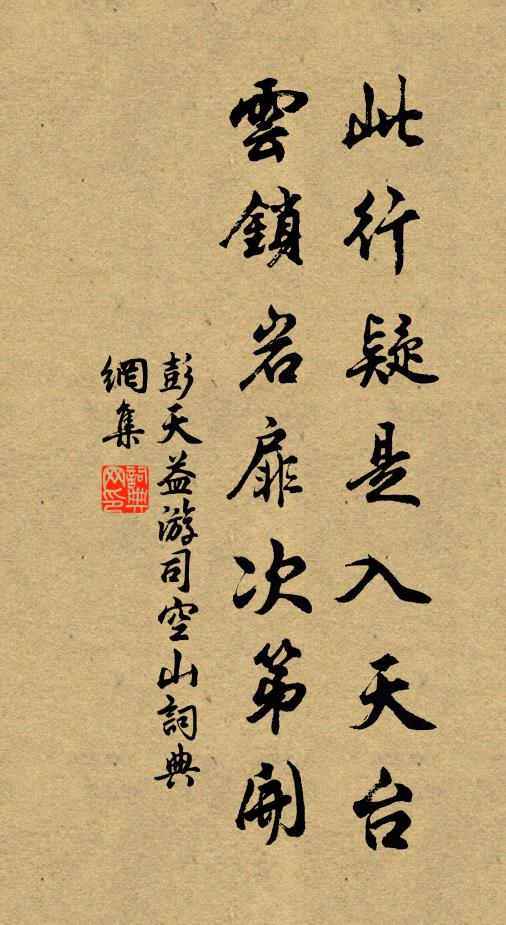 此行疑是入天台
雲鎖岩扉次第開
彭天益游司空山詞典
網集
詞典
网印